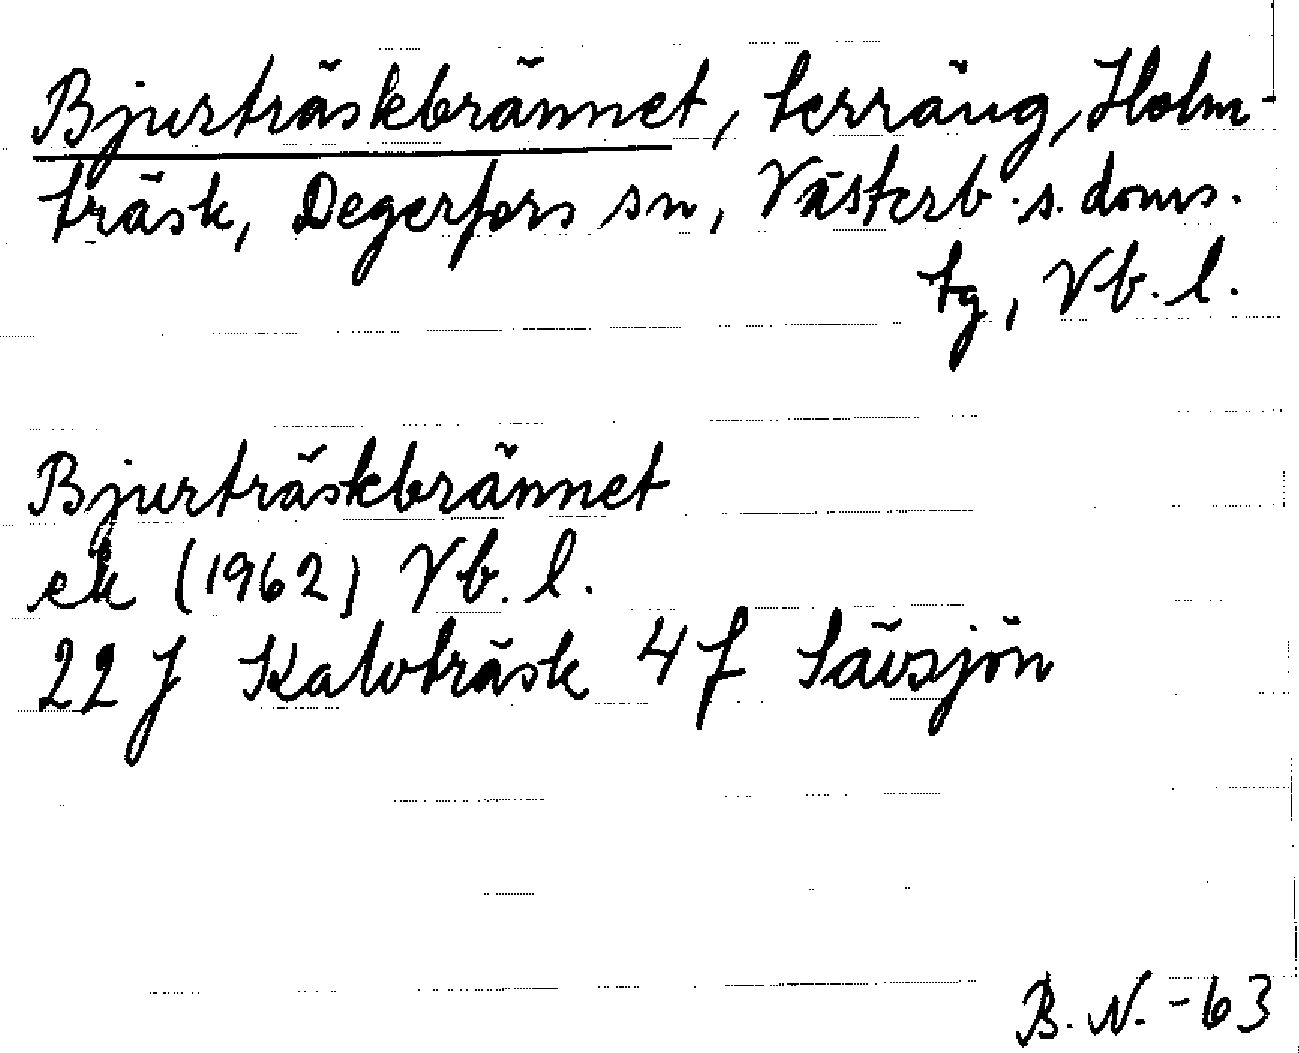 Bjurträskbrännet, terräng, Holm-
träsk, Degerfors sn, Västerb. s. doms.
tg, Vb. l.
Bjurträskbrännet
ek (1962) Vb. l.
22 J Kalvträsk 4 f Sävsjön
B. N. -63